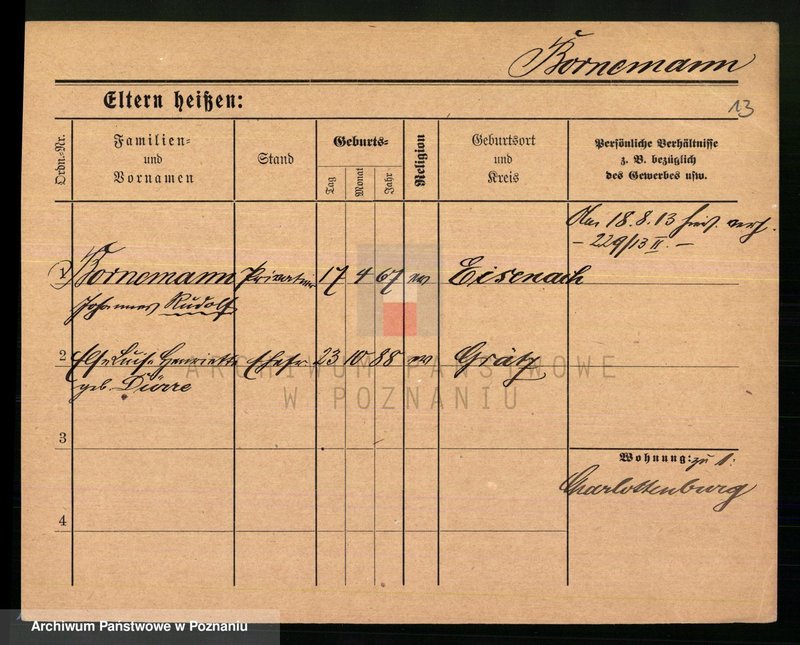 Bornemann
13
Eltern heißen:
Ordn.-Nr.
Familien=
und
Vornamen
Stand
Geburts=
Tag
Monat
Jahr
Religion
Geburtsort
und
Kreis
Persönliche Verhältnisse
z. B. bezüglich
des Gewerbes usw.
18.8.13
- 229/13 II. -
1 Bornemann Privatier 17 4 67 ev Eisenach
Johannes Rudolf
2 Else Luise Henriette Ehefr 23 10 88 ev Grätz
geb. Dürre
3
Wohnung: zu 1:
Charlottenburg
4
ARCHIWUM PAŃSTWOWE
W POZNANIU
Archiwum Państwowe w Poznaniu